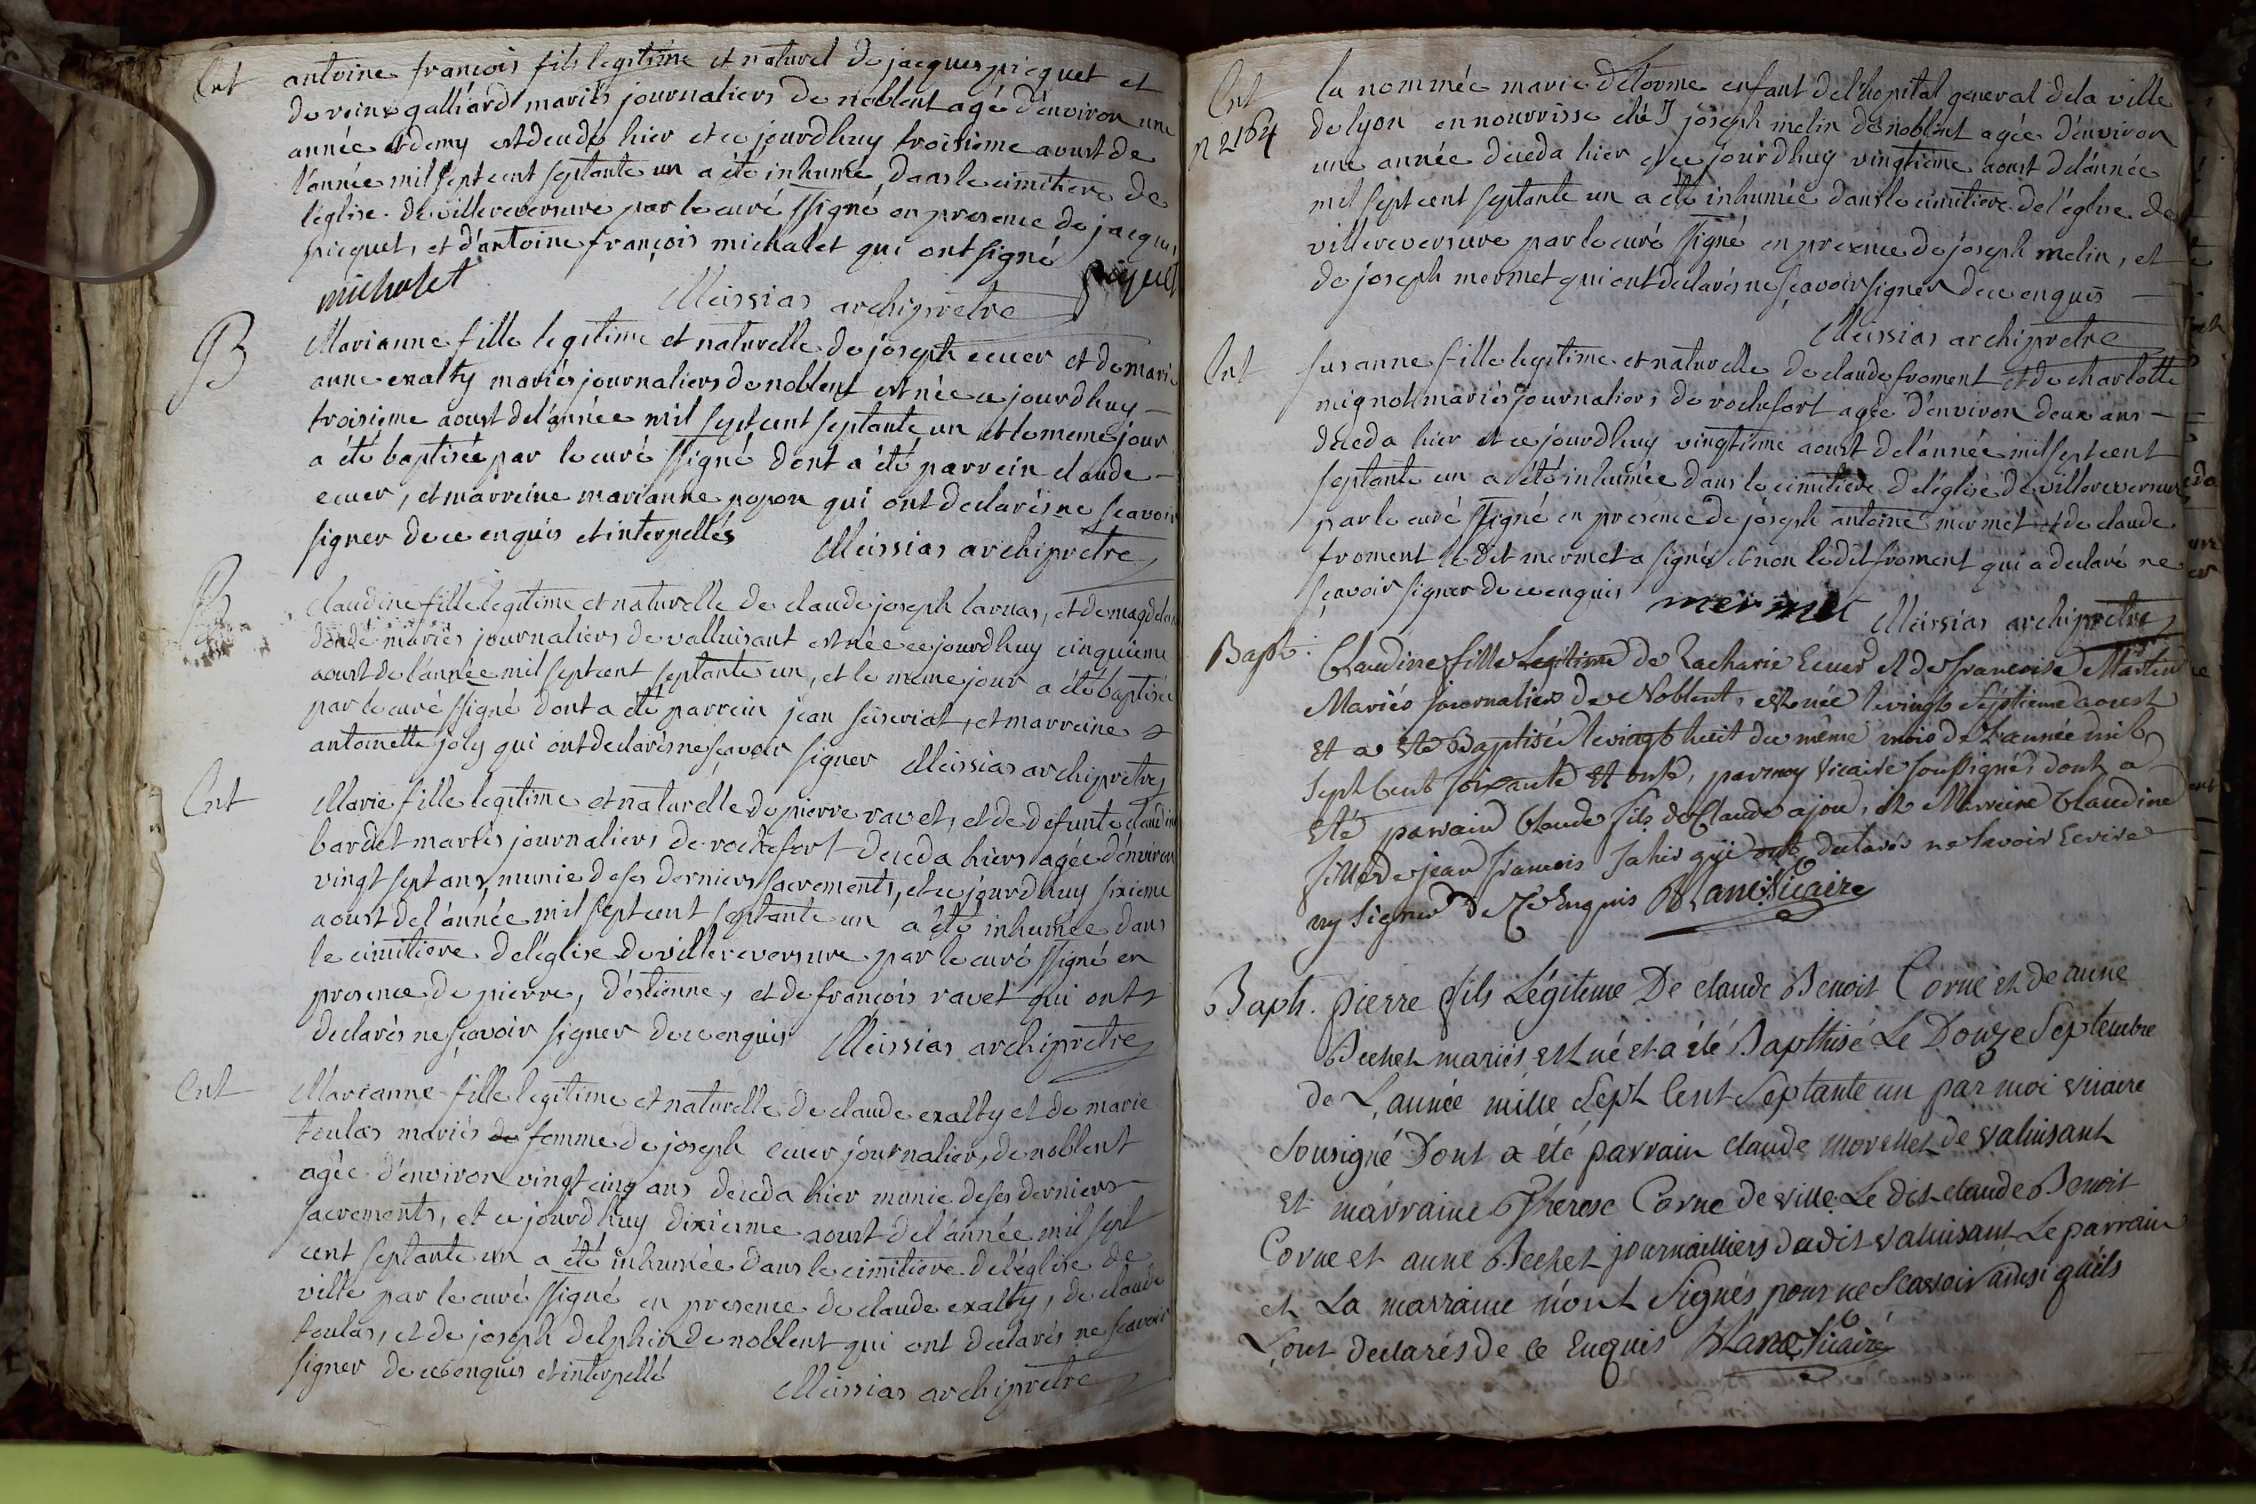 Ent antoine françois fils legitime et naturel de jacques picquet et
de reine galliard mariés journaliers de noblent agé d'environ une
année et demy est decedé hier et ce jourdhuy troisieme aoust de
l'année mil sept cent septante un a été inhumé dans le cimitiere de
l'église de villereversure par le curé ssigné en presence de jacques
picquet, et d'antoine françois michalet qui ont signé
michalet Meissias archipretre piquet
B Marianne fille legitime et naturelle de joseph ecuer et de marie
anne exalty mariés journaliers de noblent est née ce jourdhuy
troisieme aoust de l'année mil sept cent septante un et le meme jour
a été baptisée par le curé ssigné dont a été parrein claude
ecuer, et marreine marianne popon qui ont declarés ne sçavoir
signer de ce enquis et interpellés Meissias archipretre
B claudine fille legitime et naturelle de claude joseph laruas, et de magdelaine
dondé mariés journaliers de valluisant est née ce jourdhuy cinquieme
aoust de l'année mil sept cent septante un, et le meme jour a été baptisée
par le curé ssigné dont a été parrein jean seiseriat, et marreine
antoinette joly qui ont declarés ne sçavoir signer Meissias archipretre
Ent Marie fille legitime et naturelle de pierre ravet, et de defunte claudine
bardet mariés journaliers de rochefort deceda hier agée d'environ
vingt sept ans, munie de ses derniers sacrements, et ce jourdhuy sixieme
aoust de l'année mil sept cent septante un a été inhumée dans
le cimitiere de l'église de villereversure par le curé ssigné en
presence de pierre, d'estienne, et de françois ravet qui ont
declarés ne sçavoir signer de ce enquis Meissias archipretre
Ent Marianne fille legitime et naturelle de claude exalty et de marie
toulas mariés de femme de joseph ecuer journalier de noblent
agée d'environ vingt cinq ans deceda hier munie de ses derniers
sacrements, et ce jourdhuy dixieme aoust de l'année mil sept
cent septante un a été inhumée dans le cimitiere de l'église de
ville par le curé ssigné en presence de claude exalty, de claude
toulas, et de joseph delphin de noblent qui ont declarés ne sçavoir
signer de ce enquis et interpellé Meissias archipretre
Ent la nommée marie delorme enfant de l'hopital general de la ville
n 2164 de lyon en nourrisse chéz joseph melin de noblent agée d'environ
une année deceda hier et ce jourdhuy vingtieme aoust de l'année
mil sept cent septante un a été inhumée dans le cimitiere de l'église de
villereversure par le curé ssigné en presence de joseph melin, et
de joseph mermet qui ont declarés ne sçavoir signer de ce enquis
Meissias archipretre
Ent susanne fille legitime et naturelle de claude froment et de charlotte
mignot mariés journaliers de rochefort agée d'environ deux ans
deceda hier et ce jourdhuy vingtieme aoust de l'année mil sept cent
septante un a été inhumée dans le cimitiere de l'église de villereversure
par le curé ssigné en presence de joseph antoine mermet et de claude
froment le dit mermet a signé et non le dit froment qui a declaré ne
sçavoir signer de ce enquis mermet Meissias archipretre
Bapt: Claudine fille Legitime de Zacharie Ecuer et de francoise Martin
Mariés journalier de Noblent, est née le vingt septieme aoust
et a été Baptisé le vingt huit du même mois de l'année mil
sept Cent soixante et onze, par moy vicaire soussigné, dont a
été parrain Claude fils de Claude ajou, et Marreine Claudine
fille de jean francois sahir qui ont declarés ne savoir Ecrire
ny signer de Ce Enquis Blanc Vicaire
Bapt. pierre fils Légitime De claude Benoit Corne et de anne
Bechet mariés est né et a été Bapthisé Le Douze septembre
de L'année mille sept Cent septante un par moi vicaire
sousigné Dont a été parrain claude morellet de valuisant
et marraine Therese Corne de ville Le dit claude Benoit
Corne et anne Bechet journailliers dudit valuisant Le parrain
et La marraine n'ont signés pour ne scavoir ainsi qu'ils
L'ont declarés de ce Enquis Blanc Vicaire